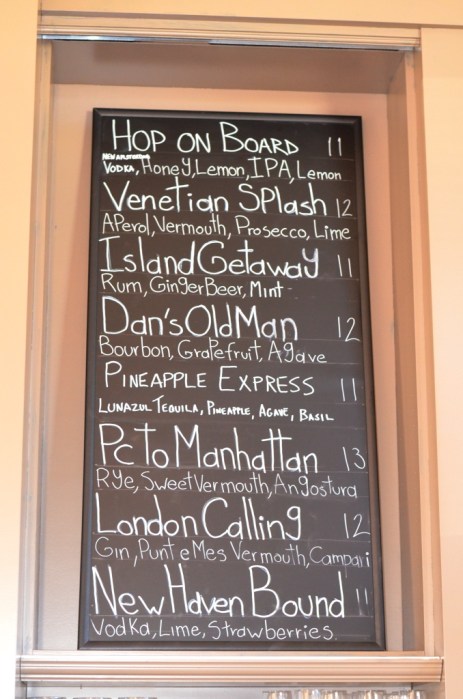 HOP ON BOARD 11
VODKA, HoneY, Lemon, IPA, Lemon
Venetian SPlash 12
APerol, Vermouth, Prosecco, Lime
Island Getaway 11
Rum, GingerBeer, Mint
Dan's Old Man 12
Bourbon, GraPefruit, Agave
PINEAPPLE EXPRESS 11
LUNAZUL TEQUILA, PINEAPPLE, AGAVE, BASIL
Pc to Manhattan 13
RYe, Sweet Vermouth, Angostura
London Calling 12
Gin, Punt e Mes Vermouth, Campari
New Haven Bound 11
Vodka, Lime, Strawberries